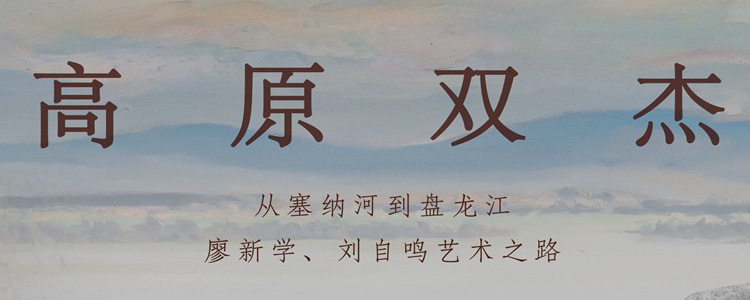 高原双杰
从塞纳河到盘龙江
廖新学、刘自鸣艺术之路